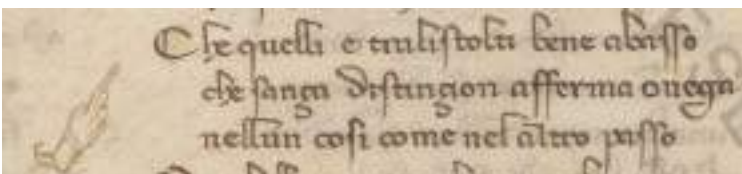 Che quelli e tralistolti bene abasso
che sança distingion afferma o nega
nellun cosi come nel altro passo